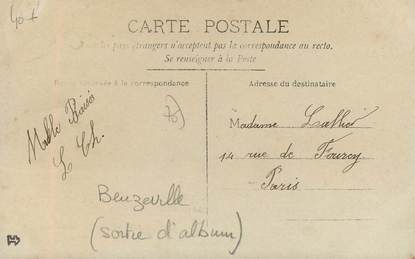 CARTE POSTALE
pays étrangers n'acceptent pas la correspondance au recto.
Se renseigner à la Poste
à la correspondance
Adresse du destinataire
Mille Baisers
L Ch.
Madame
14 rue de Fourcy
Paris
Beuzeville
(sortie d'album)